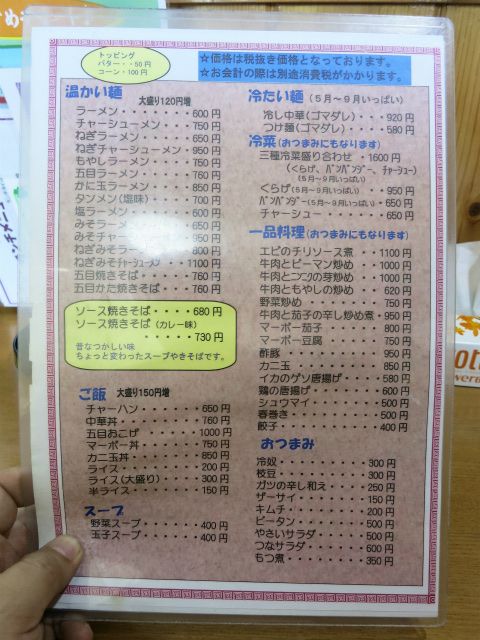 トッピング
バター・・50円
コーン・・100円
☆価格は税抜き価格となっております。
☆お会計の際は別途消費税がかかります。
温かい麺 大盛り120円増
ラーメン・・・・・・・600円
チャーシューメン・・・・750円
ねぎラーメン・・・・・・650円
ねぎチャーシューメン・・・950円
もやしラーメン・・・・・750円
五目ラーメン・・・・・・760円
かに玉ラーメン・・・・・850円
タンメン(塩味)・・・・・700円
塩ラーメン・・・・・・・600円
みそラーメン・・・・・・650円
みそチャーシューメン・・・950円
ねぎみそラーメン・・・・800円
ねぎみそチャーシューメン・・1100円
五目焼きそば・・・・・・760円
五目かた焼きそば・・・・760円
ソース焼きそば・・・・・680円
ソース焼きそば(カレー味)
・・・・・・・730円
昔なつかしい味
ちょっと変わったスープやきそばです。
ご飯 大盛り150円増
チャーハン・・・・・・650円
中華丼・・・・・・・・760円
五目おこげ・・・・・・1000円
マーボー丼・・・・・・750円
カニ玉丼・・・・・・・850円
ライス・・・・・・・・200円
ライス(大盛り)・・・・300円
半ライス・・・・・・・150円
スープ
野菜スープ・・・・・・400円
玉子スープ・・・・・・400円
冷たい麺 (5月～9月いっぱい)
冷し中華(ゴマダレ)・・・920円
つけ麺(ゴマダレ)・・・・580円
冷菜(おつまみにもなります)
三種冷菜盛り合わせ ・1600円
(くらげ、バンバンジー、チャーシュー)
(5月～9月いっぱい)
くらげ(5月～9月いっぱい)・・・950円
バンバンジー(5月～9月いっぱい)・・650円
チャーシュー・・・・・・650円
一品料理(おつまみにもなります)
エビのチリソース煮・・・1100円
牛肉とピーマン炒め・・・1000円
牛肉とニンニクの芽炒め・・1000円
牛肉ともやしの炒め・・・620円
野菜炒め・・・・・・・750円
牛肉と茄子の辛し炒め・950円
マーボー茄子・・・・・800円
マーボー豆腐・・・・・750円
酢豚・・・・・・・・・950円
カニ玉・・・・・・・・850円
イカのゲソ唐揚げ・・・580円
鶏の唐揚げ・・・・・・600円
シュウマイ・・・・・・500円
春巻き・・・・・・・・500円
餃子・・・・・・・・・400円
おつまみ
冷奴・・・・・・・・・300円
枝豆・・・・・・・・・300円
ガツの辛し和え・・・・250円
ザーサイ・・・・・・・150円
キムチ・・・・・・・・200円
ピータン・・・・・・・500円
やさいサラダ・・・・・500円
つなサラダ・・・・・・600円
もつ煮・・・・・・・・350円